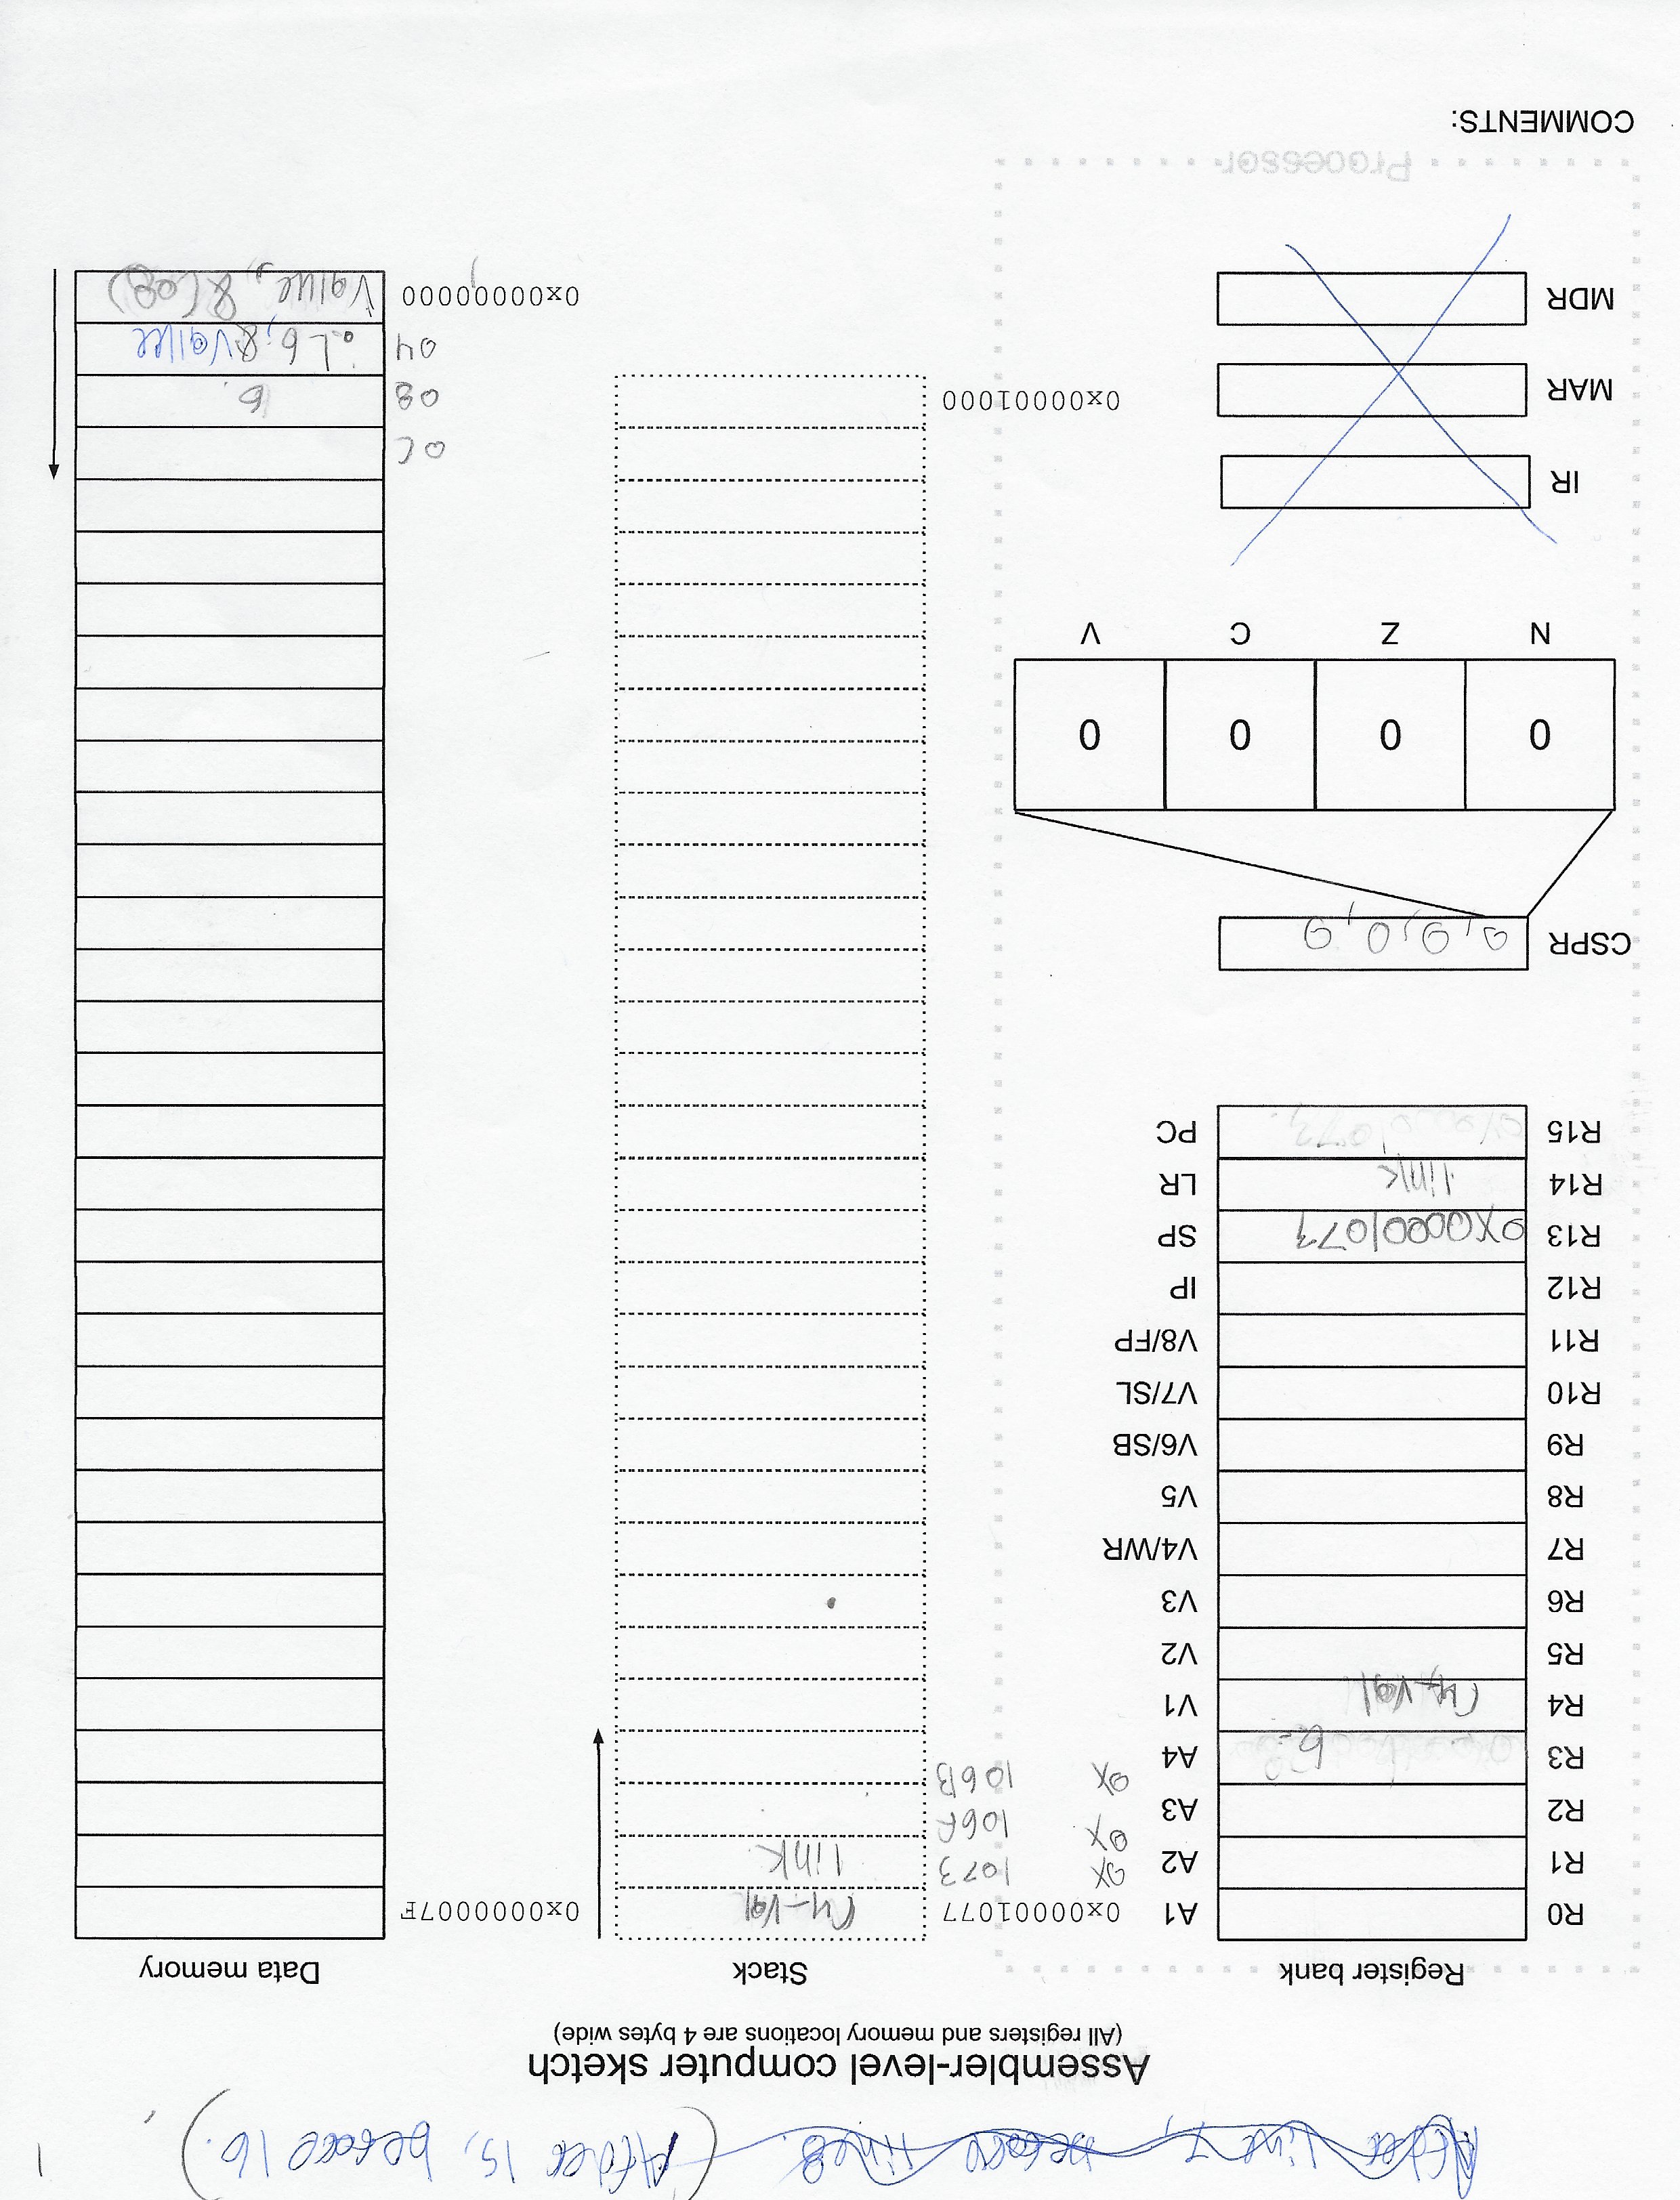 After line 7, before line 8. (After 15, before 16.) 1
Assembler-level computer sketch
(All registers and memory locations are 4 bytes wide)
Register bank
R0 A1
R1 A2
R2 A3
R3 6 A4
R4 r4-val V1
R5 V2
R6 V3
R7 V4/WR
R8 V5
R9 V6/SB
R10 V7/SL
R11 V8/FP
R12 IP
R13 0x00001073 SP
R14 link LR
R15 PC
CSPR 0, 0, 0, 0
0 0 0 0
N Z C V
IR
MAR
MDR
Processor
Stack
0x00001077 r4-val
0x 1073 link
0x 106F
0x 106B
0x00001000
Data memory
0x0000007F
0C
08 6
04 .L6, &Value
0x00000000 Value, &(08)
COMMENTS: